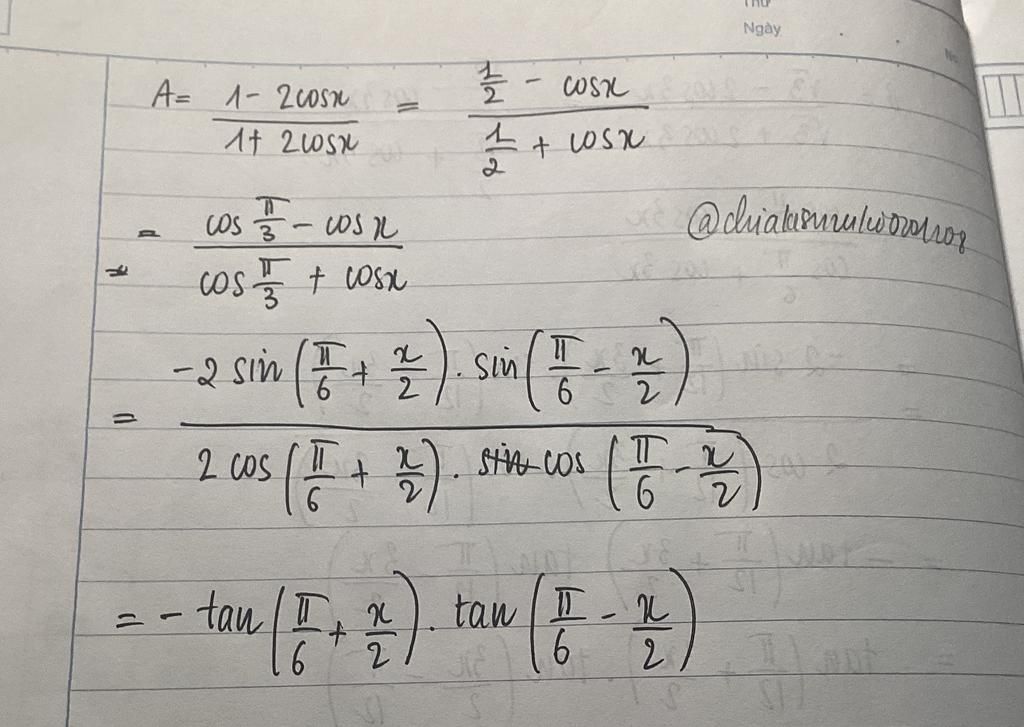 Thứ
Ngày
No.
A = (1 - 2cosx)/(1 + 2cosx) = (1/2 - cosx)/(1/2 + cosx)
= (cos π/3 - cos x)/(cos π/3 + cosx)
= (-2 sin(π/6 + x/2) . sin(π/6 - x/2))/(2 cos(π/6 + x/2) . cos(π/6 - x/2))
= - tan(π/6 + x/2) . tan(π/6 - x/2)